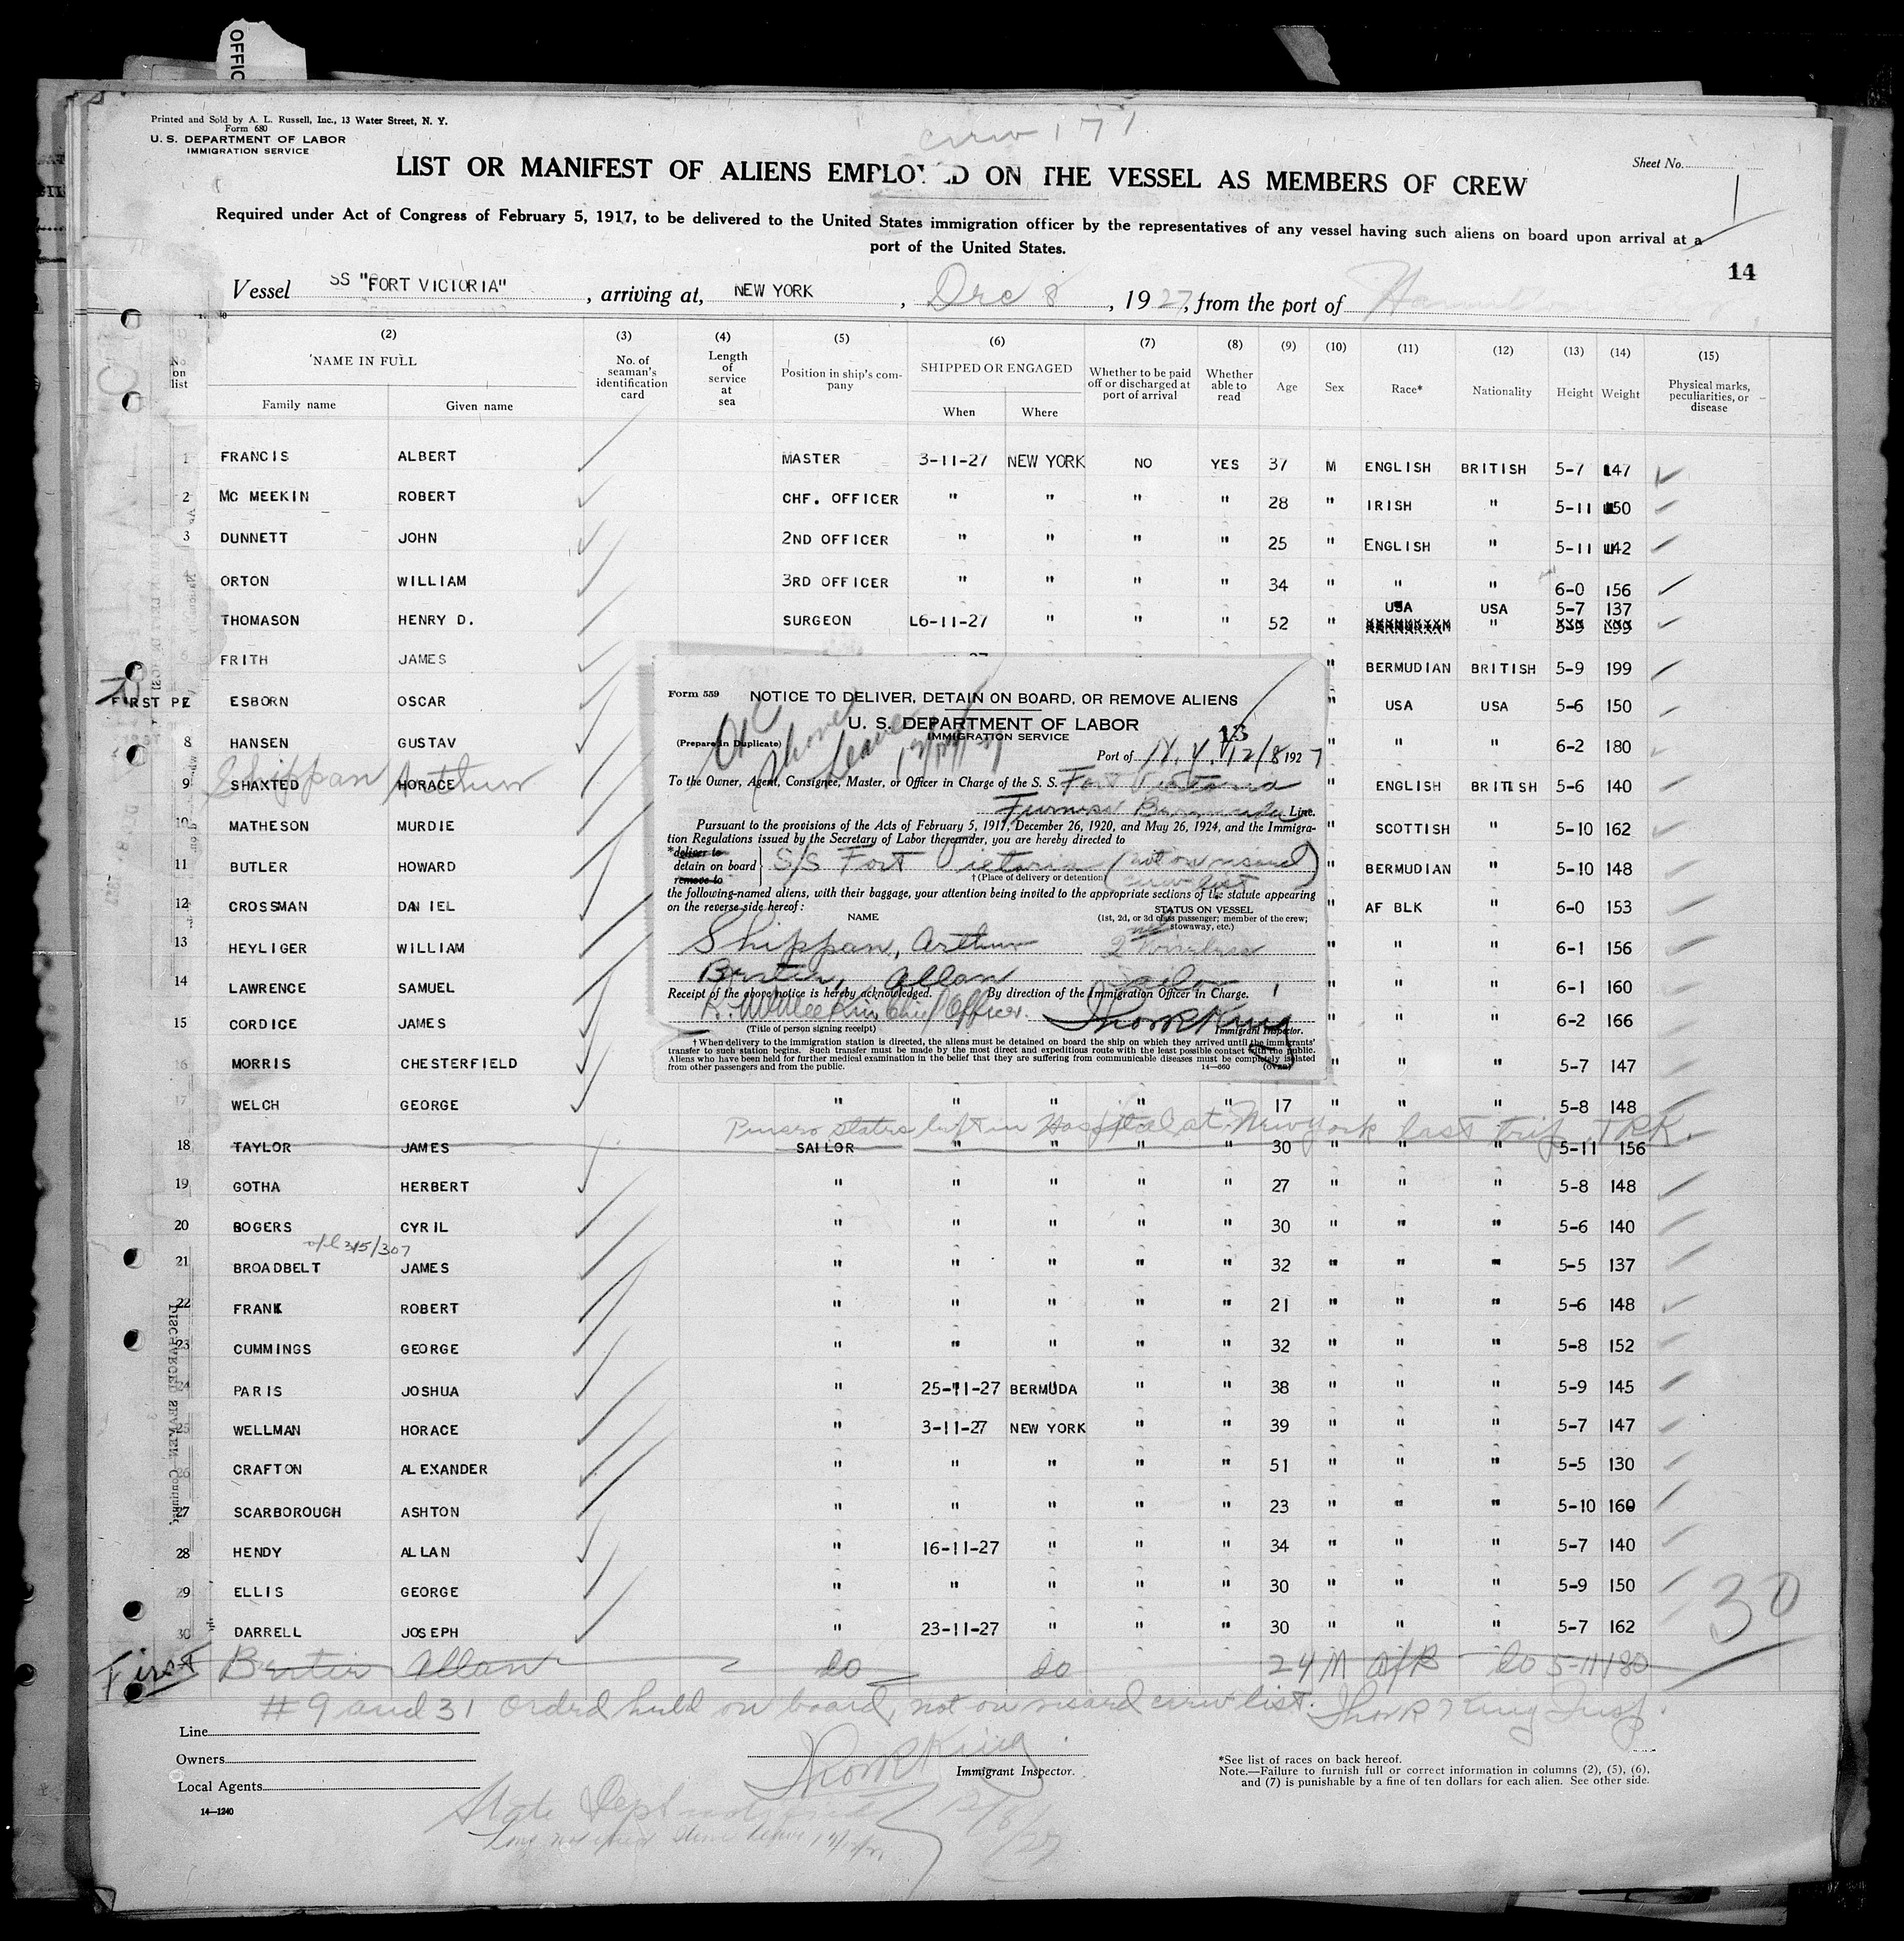 OFFIC
Printed and Sold by A. L. Russell, Inc., 13 Water Street, N. Y.
Form 680
U. S. DEPARTMENT OF LABOR
IMMIGRATION SERVICE
crew 177
Sheet No.
1
LIST OR MANIFEST OF ALIENS EMPLOYED ON THE VESSEL AS MEMBERS OF CREW
Required under Act of Congress of February 5, 1917, to be delivered to the United States immigration officer by the representatives of any vessel having such aliens on board upon arrival at a
port of the United States.
14
Vessel SS "FORT VICTORIA", arriving at, NEW YORK, Dec 8, 1927, from the port of Hamilton
(2) (3) (4) (5) (6) (7) (8) (9) (10) (11) (12) (13) (14) (15)
No on list NAME IN FULL Family name Given name No. of seaman's identification card Length of service at sea Position in ship's company SHIPPED OR ENGAGED When Where Whether to be paid off or discharged at port of arrival Whether able to read Age Sex Race* Nationality Height Weight Physical marks, peculiarities, or disease
1 FRANCIS ALBERT MASTER 3-11-27 NEW YORK NO YES 37 M ENGLISH BRITISH 5-7 147
2 Mc MEEKIN ROBERT CHF. OFFICER " " " " 28 " IRISH " 5-11 150
3 DUNNETT JOHN 2ND OFFICER " " " " 25 " ENGLISH " 5-11 142
ORTON WILLIAM 3RD OFFICER " " " " 34 " " " 6-0 156
USA USA 5-7 137
THOMASON HENRY D. SURGEON L6-11-27 " " " 52 " "
6 FRITH JAMES " BERMUDIAN BRITISH 5-9 199
FIRST PE ESBORN OSCAR " USA USA 5-6 150
8 HANSEN GUSTAV " " " 6-2 180
Shippan Arthur
9 SHAXTED HORACE " ENGLISH BRITISH 5-6 140
10 MATHESON MURDIE " SCOTTISH " 5-10 162
11 BUTLER HOWARD " BERMUDIAN " 5-10 148
12 CROSSMAN DANIEL " AF BLK " 6-0 153
13 HEYLIGER WILLIAM " " " 6-1 156
14 LAWRENCE SAMUEL " " " 6-1 160
15 CORDICE JAMES " " " 6-2 166
16 MORRIS CHESTERFIELD " " " 5-7 147
17 WELCH GEORGE " " " " " 17 " " " 5-8 148
Form 559
NOTICE TO DELIVER, DETAIN ON BOARD, OR REMOVE ALIENS
U. S. DEPARTMENT OF LABOR
IMMIGRATION SERVICE
(Prepare in Duplicate)
OK Shore Leave
13
Port of N.Y. 12/8 1927
To the Owner, Agent, Consignee, Master, or Officer in Charge of the S. S. Fort Victoria
Furness Bermuda Line.
Pursuant to the provisions of the Acts of February 5, 1917, December 26, 1920, and May 26, 1924, and the Immigra-
tion Regulations issued by the Secretary of Labor thereunder, you are hereby directed to
*deliver to
detain on board S/S Fort Victoria (not on visaed crew list)
remove to
†(Place of delivery or detention)
the following-named aliens, with their baggage, your attention being invited to the appropriate sections of the statute appearing
on the reverse side hereof:
NAME STATUS ON VESSEL
(1st, 2d, or 3d class passenger; member of the crew; stowaway, etc.)
Shippan, Arthur 2 Wireless
Allan Sailor
Receipt of the above notice is hereby acknowledged. By direction of the Immigration Officer in Charge.
R. McMeekin Chief Officer. Thos R King
(Title of person signing receipt) Immigrant Inspector.
† When delivery to the immigration station is directed, the aliens must be detained on board the ship on which they arrived until the immigrants'
transfer to such station begins. Such transfer must be made by the most direct and expeditious route with the least possible contact with the public.
Aliens who have been held for further medical examination in the belief that they are suffering from communicable diseases must be completely isolated
from other passengers and from the public. 14—660 (OVER)
Purser states left in Hospital at New York last trip. TRK.
18 TAYLOR JAMES SAILOR " " " " 30 " " " 5-11 156
19 GOTHA HERBERT " " " " " 27 " " " 5-8 148
20 BOGERS CYRIL " " " " " 30 " " " 5-6 140
315/307
21 BROADBELT JAMES " " " " " 32 " " " 5-5 137
22 FRANK ROBERT " " " " " 21 " " " 5-6 148
23 CUMMINGS GEORGE " " " " " 32 " " " 5-8 152
24 PARIS JOSHUA " 25-11-27 BERMUDA " " 38 " " " 5-9 145
25 WELLMAN HORACE " 3-11-27 NEW YORK " " 39 " " " 5-7 147
26 CRAFTON ALEXANDER " " " " " 51 " " " 5-5 130
27 SCARBOROUGH ASHTON " " " " " 23 " " " 5-10 160
28 HENDY ALLAN " 16-11-27 " " " 34 " " " 5-7 140
29 ELLIS GEORGE " " " " " 30 " " " 5-9 150
30 DARRELL JOSEPH " 23-11-27 " " " 30 " " " 5-7 162
30
First Allan do do 24 M Af B do 5-11 180
#9 and 31 Ordrd held on board, not on visaed crew list. Thos R King Insp.
Line
Owners
Local Agents
14—1240
Thos R King
Immigrant Inspector.
*See list of races on back hereof.
Note.—Failure to furnish full or correct information in columns (2), (5), (6),
and (7) is punishable by a fine of ten dollars for each alien. See other side.
State Dept notified 12/8/27
DISCHARGED SEAMEN